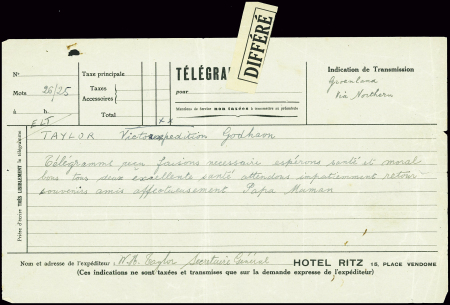 DIFFÉRÉ
N°
Mots 26/25
à h.
Taxe principale
Taxes Accessoires
Total
TÉLÉGRA
pour
Mentions de Service non taxées à transmettre en préambule
Indication de Transmission
Groenland
Via Northern
ELT
TAYLOR Victorexpedition Godhavn
Télégramme reçu faisons nécessaire espérons santé et moral
bons tous deux excellente santé attendons impatiemment retour
souvenirs amis affectueusement Papa Maman
Prière d'écrire TRÈS LISIBLEMENT le télégramme
Nom et adresse de l'expéditeur W. H. Taylor Secrétaire Général HOTEL RITZ 15, PLACE VENDOME
(Ces indications ne sont taxées et transmises que sur la demande expresse de l'expéditeur)